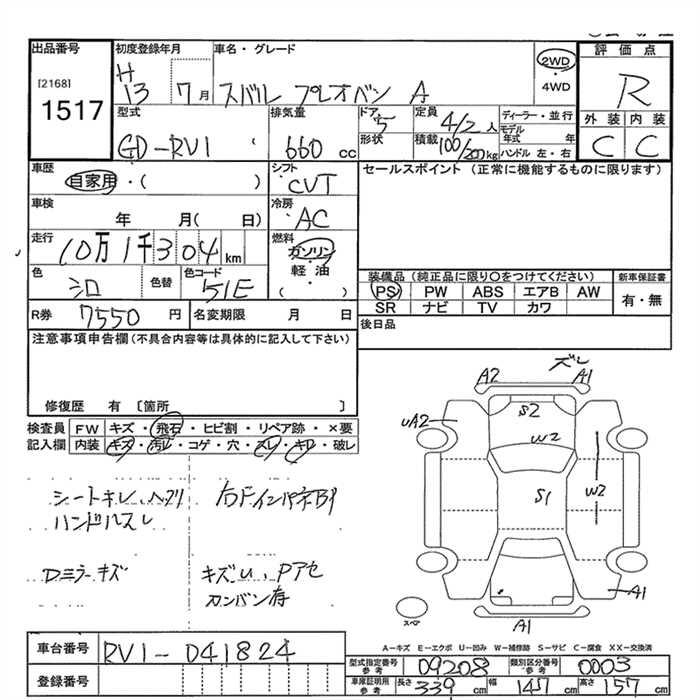 出品番号
[2168]
1517
初度登録年月
H 13 7月
車名・グレード
スバル プレオバン A
2WD
・
4WD
評価点
R
外装 内装
C C
型式
GD-RV1
排気量
660 cc
ドア
5
形状
定員
4/2 人
積載
100/200kg
ディーラー・並行
モデル年式 年
ハンドル 左・右
車歴
自家用・( )
シフト
CVT
セールスポイント (正常に機能するものに限ります)
車検
年 月( 日)
冷房
AC
走行
10万1千304km
燃料
ガソリン
軽油
( ・ )
色
シロ
色替
色コード
51E
装備品 (純正品に限り○をつけてください)
新車保証書
PS PW ABS エアB AW
SR ナビ TV カワ
有・無
R券 7550円
名変期限 月 日
後日品
注意事項申告欄(不具合内容等は具体的に記入して下さい)
修復歴 有 〔箇所 〕
検査員記入欄
FW キズ・飛石・ヒビ割・リペア跡・×要
内装 キズ・汚レ・コゲ・穴・スレ・キレ・破レ
シートキレ、ヘタリ
ハンドルスレ
Dミラーキズ
キズU、Pアセ
カンバン有
ズレ
A2 A1
S2
UA2
W2
S1
W2
A1
A1
スペア
A-キズ E-エクボ U-凹み W-補修跡 S-サビ C-腐食 XX-交換済
車台番号
RV1-041824
登録番号
型式指定番号 参考
09208
類別区分番号 参考
0003
車庫証明用 参考
長さ 339 cm
幅 147 cm
高さ 157 cm